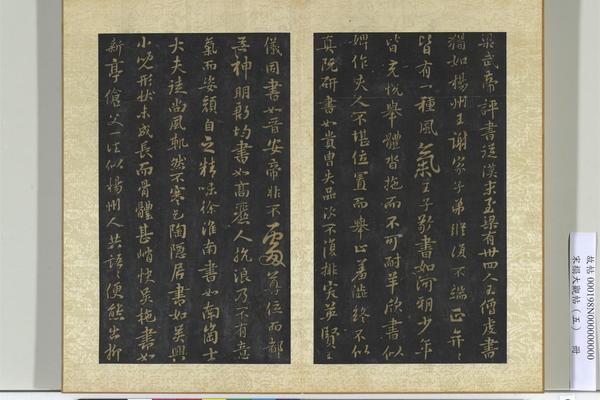 梁武帝評書從漢末至梁有卅四人王僧虔書
猶如楊州王謝家子弟縱復不端正奕〻
皆有一種風氣王子敬書如河朔少年
皆充悅舉體沓拖而不可耐羊欣書似
婢作夫人不堪位置而舉止羞澁終不似
真阮研書如貴冑失品次不復排突英賢王
儀同書如晉安帝非不處尊位而都
無神明
書如高麗人抗浪乃不有意
氣而姿顏自乏精味徐淮南書如南崗士
大夫徒尚風軌然不寒乞陶隱居書如吳興
小兒形狀未成長而骨體甚峭快吳施書如
新亭傖父一往似楊州人共語〻便態出柳
故帖 000198N000000000
宋搨大觀帖（五） 冊